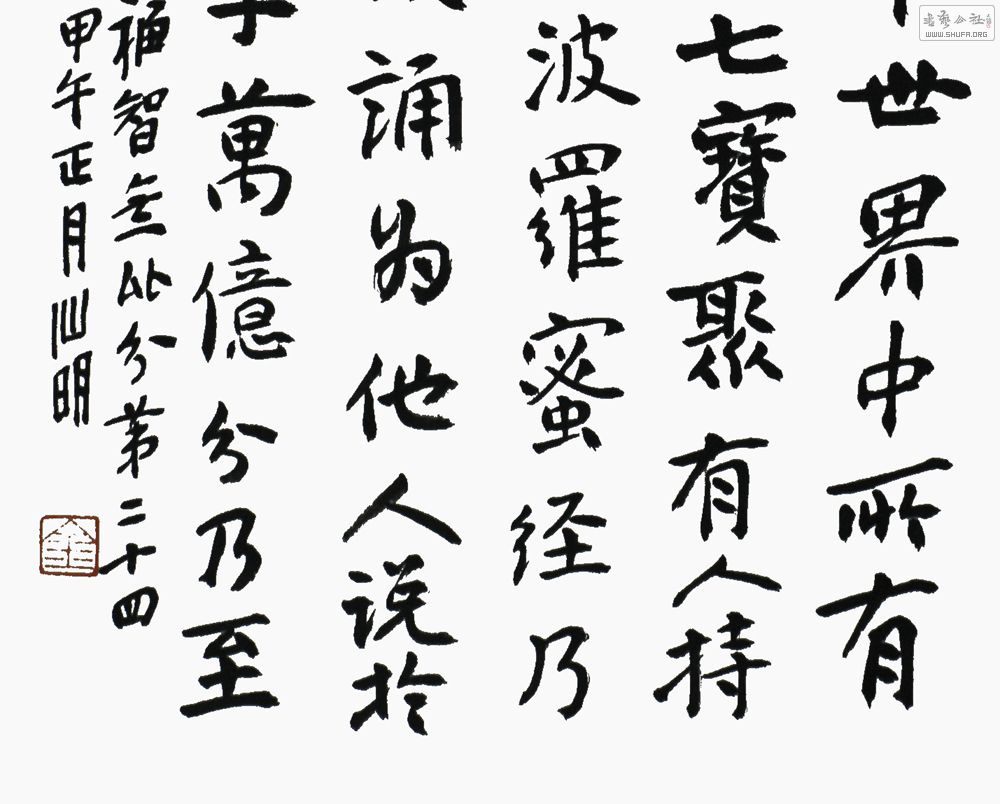 世界中所有
七寶聚有人持
波羅蜜经乃
誦为他人说於
萬億分乃至
福智无比分第二十四
甲午正月明
書藝公社
WWW.SHUFA.ORG